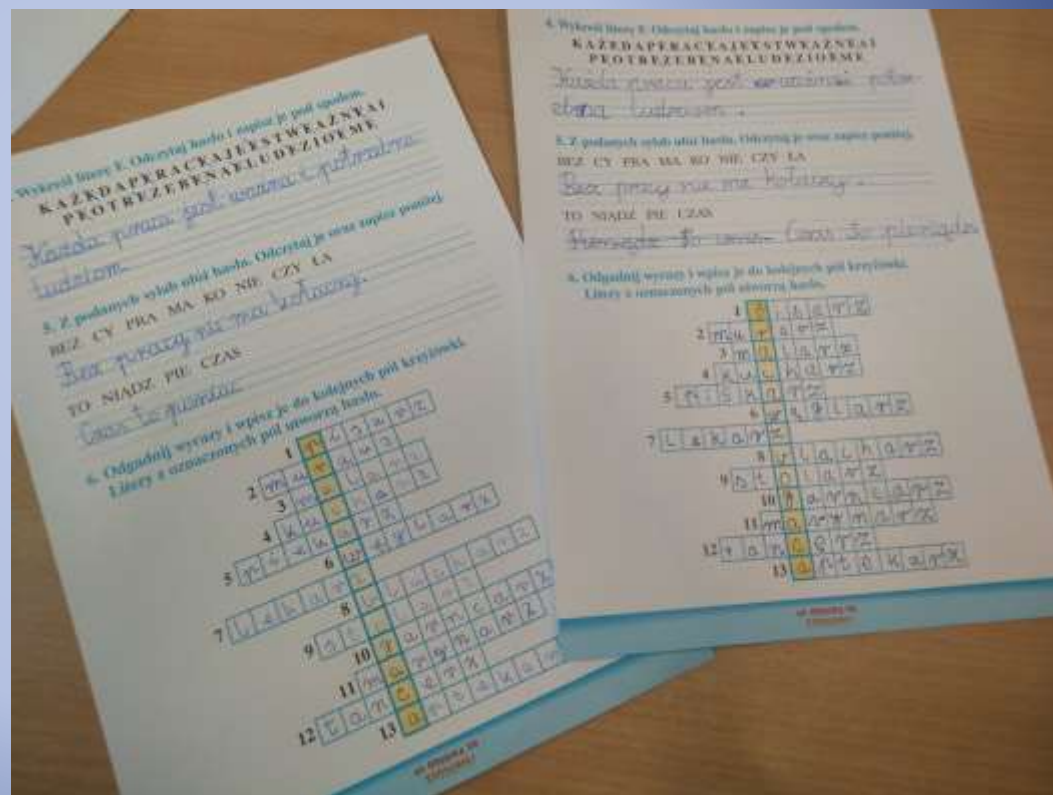 Wykreśl literę E. Odczytaj hasło i zapisz je pod spodem.
KAŻEDAPERACEAJEESTWEAŻNEAI
PEOTREZEBENAELUDEZIOEME
Każda praca jest ważna i potrzebna
ludziom.
5. Z podanych sylab ułóż hasła. Odczytaj je oraz zapisz poniżej.
BEZ CY PRA MA KO NIE CZY ŁA
Bez pracy nie ma kołaczy.
TO NIĄDZ PIE CZAS
Czas to
6. Odgadnij wyrazy i wpisz je do kolejnych pól krzyżówki.
Litery z oznaczonych pól utworzą hasło.
1
2 murarz
3 malarz
4 kucharz
5
6 węglarz
7 lekarz
8
9
10 garncarz
11 marynarz
12 tancerz
13
4. Wykreśl literę E. Odczytaj hasło i zapisz je pod spodem.
KAŻEDAPERACEAJEESTWEAŻNEAI
PEOTREZEBENAELUDEZIOEME
Każda praca jest
5. Z podanych sylab ułóż hasła. Odczytaj je oraz zapisz poniżej.
BEZ CY PRA MA KO NIE CZY ŁA
Bez pracy nie ma kołaczy.
TO NIĄDZ PIE CZAS
Czas to pieniądz
6. Odgadnij wyrazy i wpisz je do kolejnych pól krzyżówki.
Litery z oznaczonych pól utworzą hasło.
1
2 murarz
3 malarz
4 kucharz
5 piekarz
6 węglarz
7 lekarz
8 blacharz
9 stolarz
10 garncarz
11 marynarz
12
13